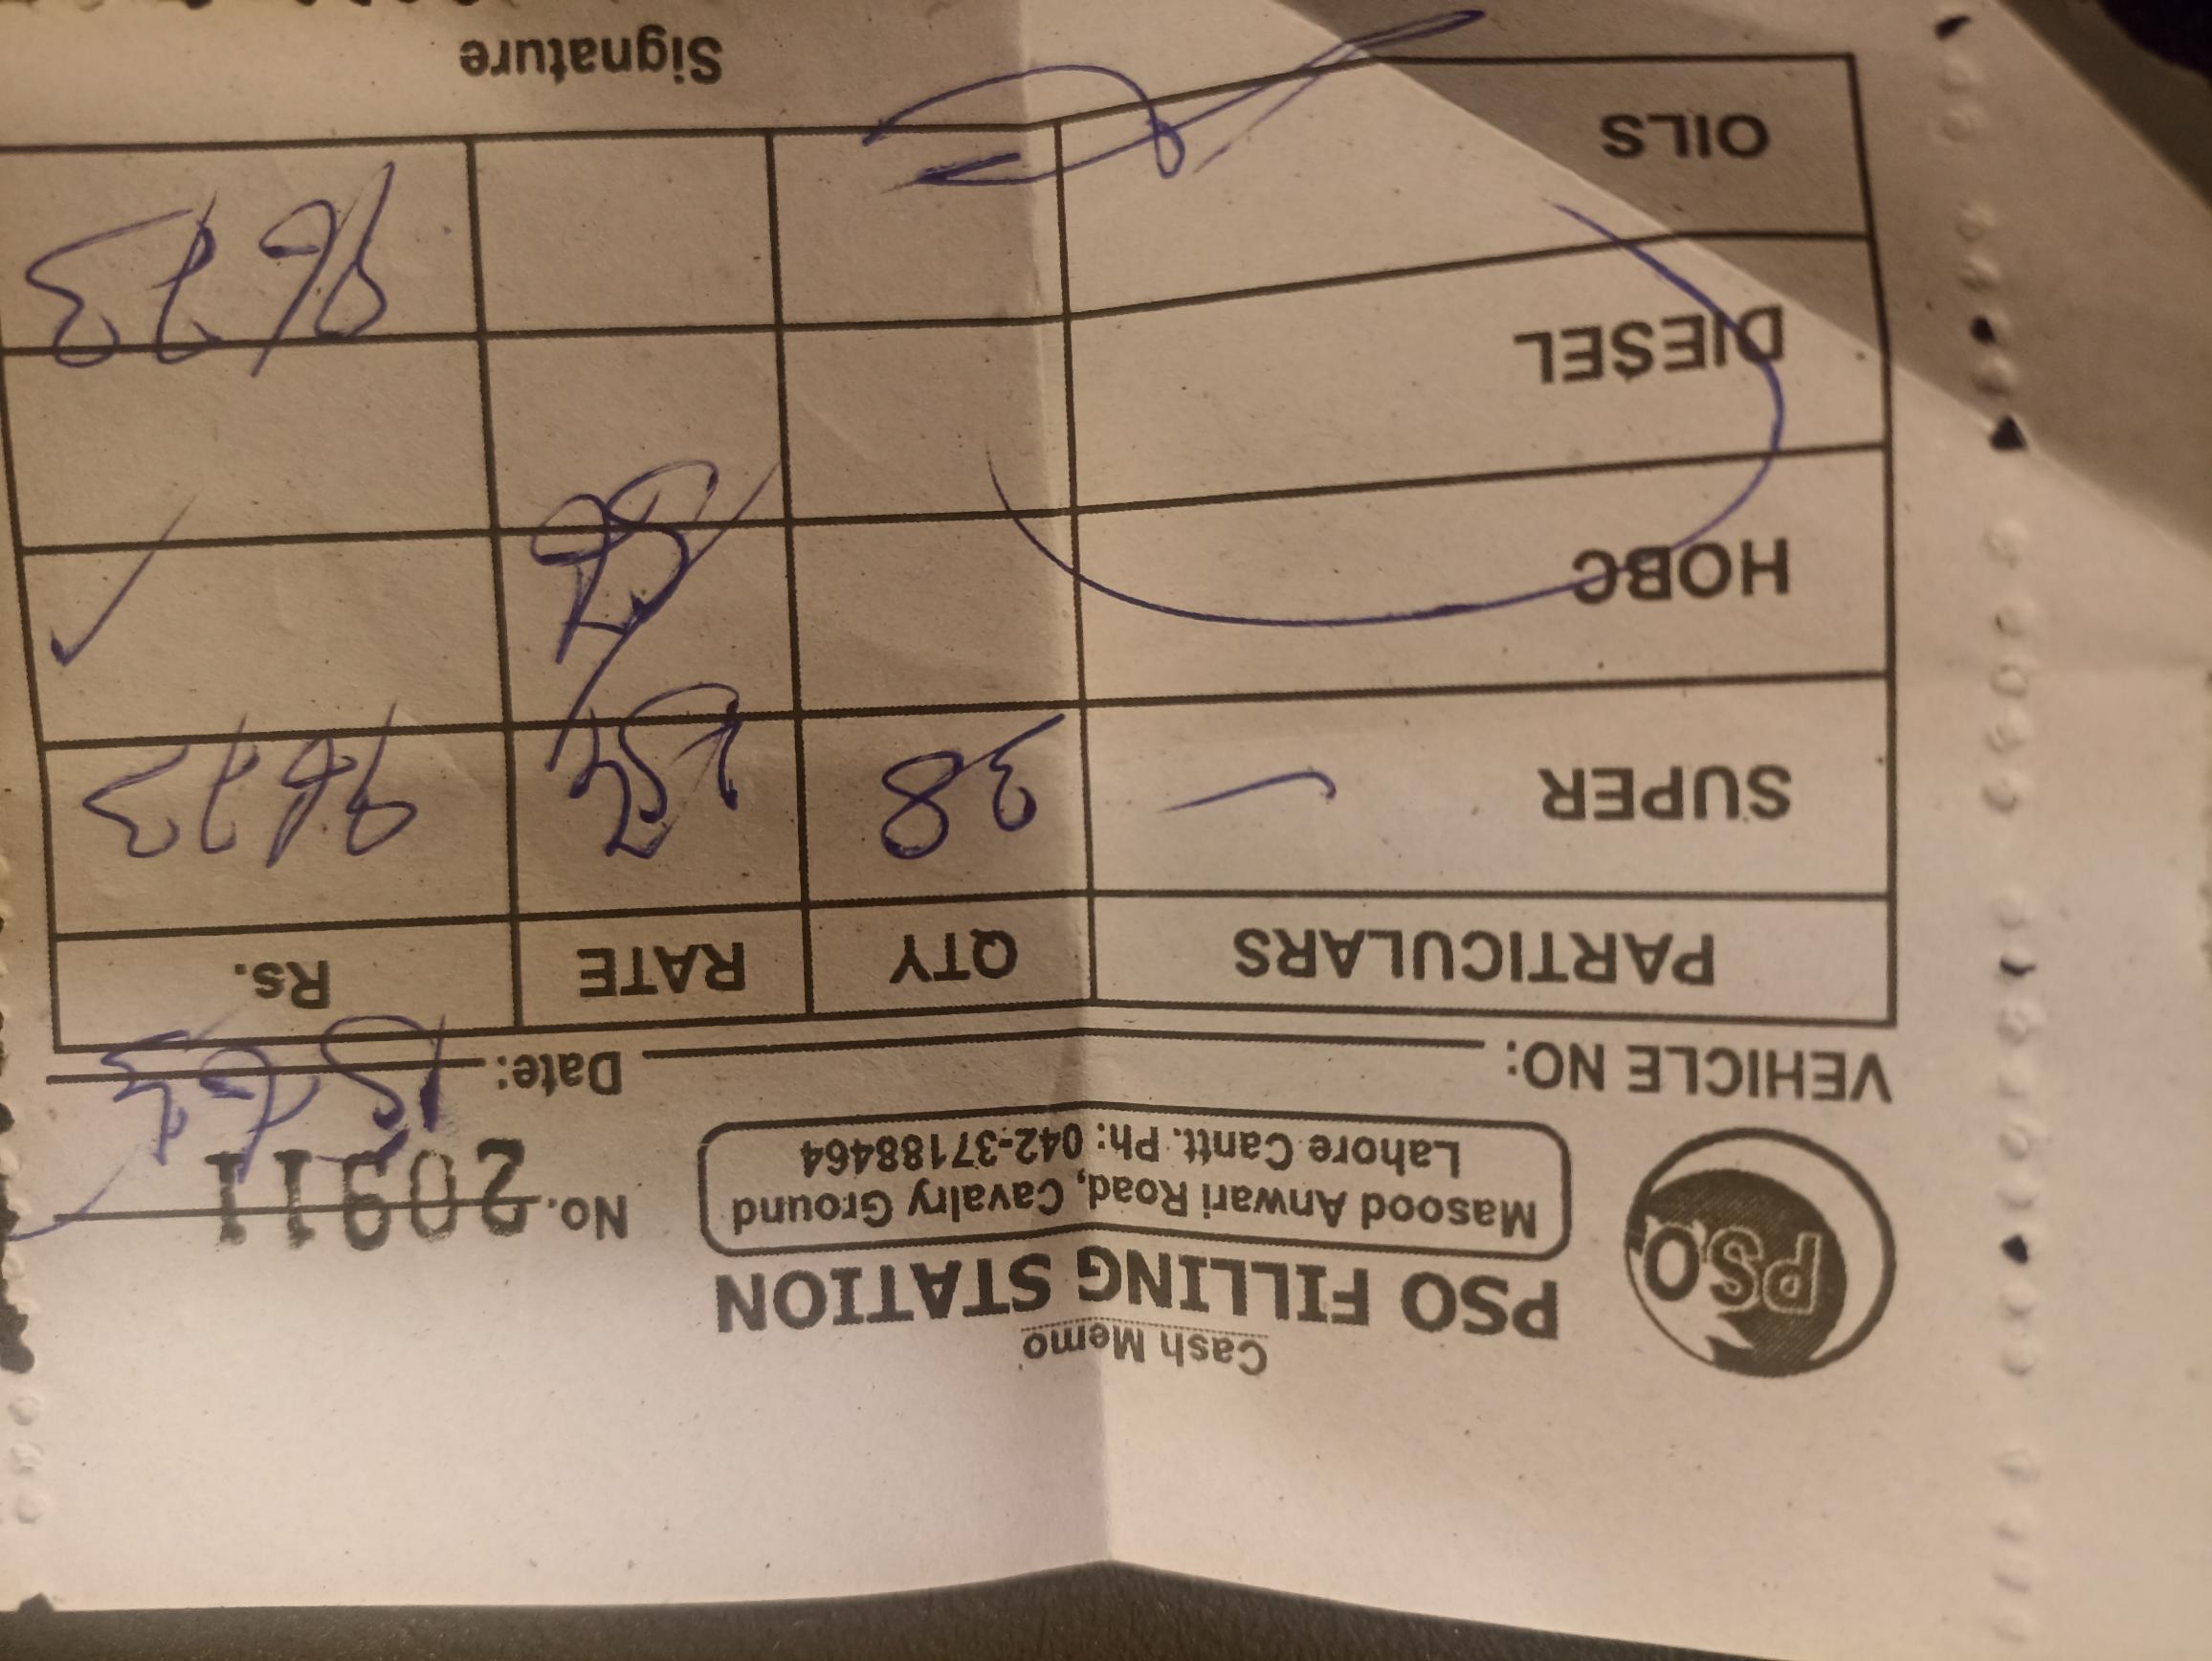 Cash Memo
PSO
PSO FILLING STATION
Masood Anwari Road, Cavalry Ground
Lahore Cantt. Ph: 042-37188464
No. 20911
VEHICLE NO: Date: 15
PARTICULARS QTY RATE Rs.
SUPER 38 254 9673
HOBC 56
DIESEL
9673
OILS
Signature